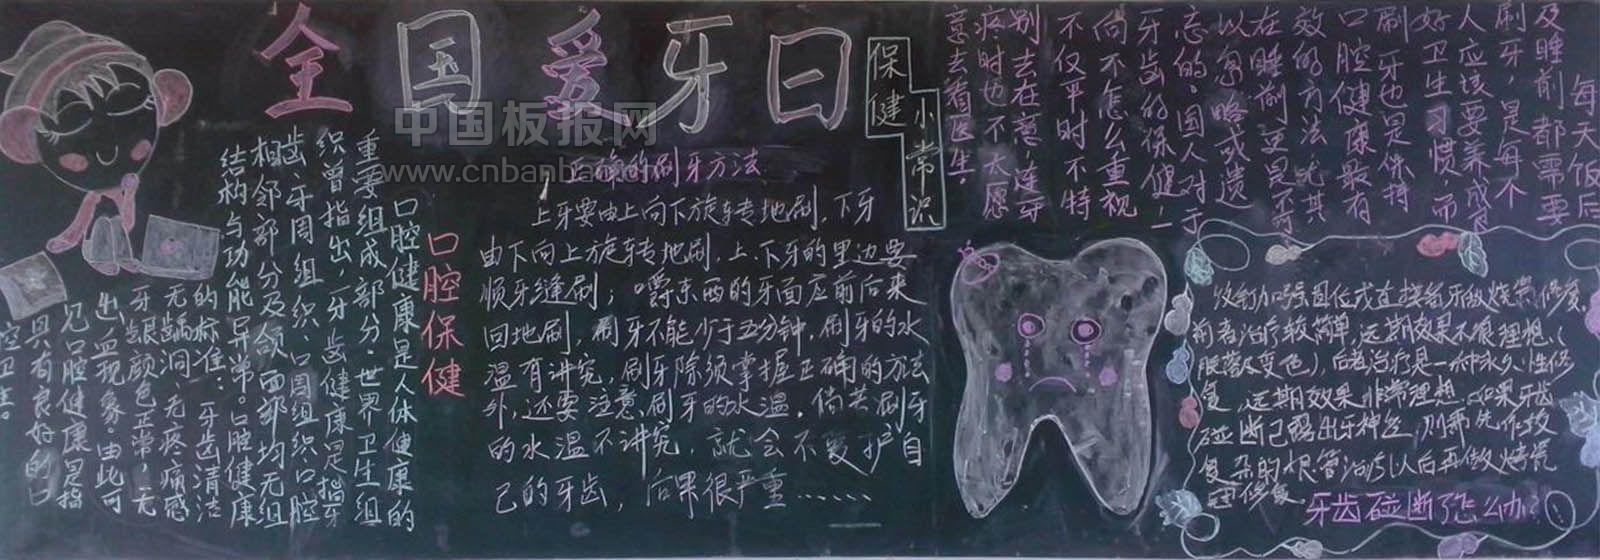 全国爱牙日
中国板报网
www.cnbanbao.cn
口腔保健
口腔健康是人体健康的
重要组成部分。世界卫生组
织曾指出,牙齿健康是指牙
齿、牙周组织、口周组织、口腔
相邻部分及颌面部均无组
织结构与功能异常。口腔健康
的标准:牙齿清洁
无龋洞、无疼痛感
牙龈颜色正常,无
出血现象。由此可
见口腔健康是指
具有良好的口
腔卫生。
正确的刷牙方法
上牙要由上向下旋转地刷,下牙
由下向上旋转地刷,上、下牙的里边要
顺牙缝刷;嚼东西的牙面应前后来
回地刷,刷牙不能少于五分钟,刷牙的水
温有讲究,刷牙除须掌握正确的方法
外,还要注意刷牙的水温。倘若刷牙
的水温不讲究,就会不爱护自
己的牙齿,后果很严重……
保健
小常识
每天饭后
及睡前都需要
刷牙,是每个
人应该要养成良
好卫生习惯,而
刷牙也是保持
口腔健康最有
效的方法,尤其
在睡前更是不可
以忽略或遗
忘的。国人对于
牙齿的保健,
向不怎么重视
不仅平时不特
别去在意,连牙
疼时也不太愿
意去看医生。
牙齿碰断了怎么办?
前者治疗较简单,远期效果不很理想,(
脱落及变色),后者治疗是一种永久性修
复,远期效果非常理想。如果牙齿
碰断已露出牙神经,则需先作较
复杂的根管治疗以后再做烤瓷
固修复。